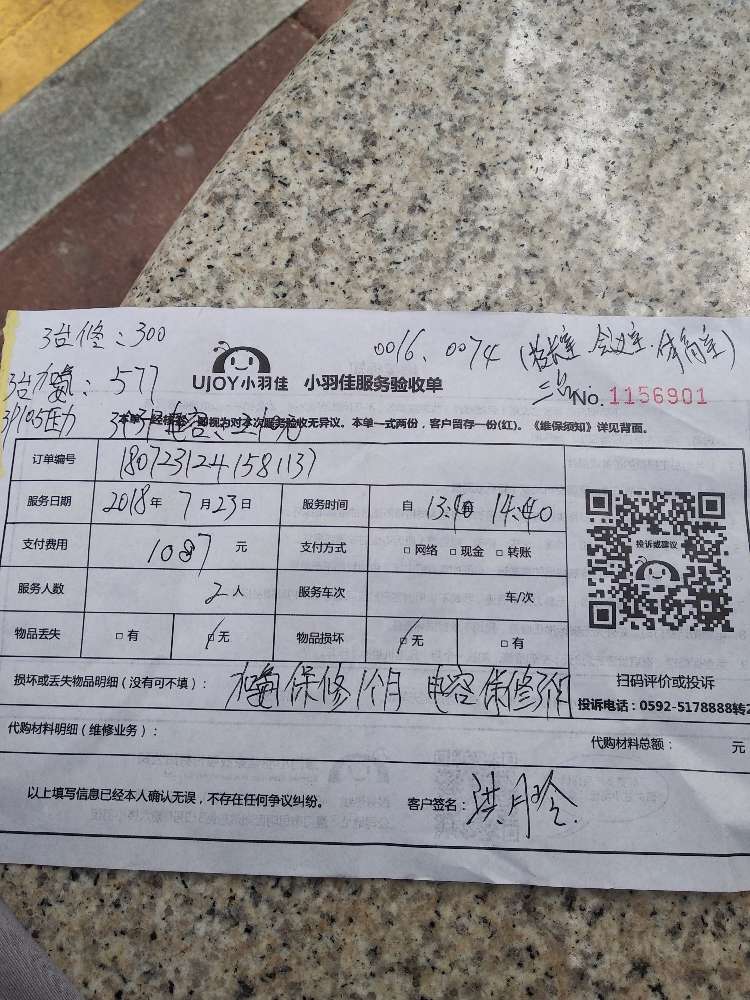 3台修：300
0016、0074（校长室、会议室、体育室）
3台加氨：577
UJOY小羽佳 小羽佳服务验收单
No. 1156901
本单一经签字，即视为对本次服务验收无异议。本单一式两份，客户留存一份(红)。《维保须知》详见背面。
订单编号 1807231241581137
服务日期 2018年 7月23日 服务时间 自 13:40 14:40
支付费用 1087元 支付方式 □ 网络 □ 现金 □ 转账
投诉或建议
服务人数 2人 服务车次 车/次
物品丢失 □ 有 □ 无 物品损坏 □ 无 □ 有
损坏或丢失物品明细（没有可不填）： 加氨保修1个月 电容保修
扫码评价或投诉
投诉电话：0592-5178888转2
代购材料明细（维修业务）： 代购材料总额： 元
以上填写信息已经本人确认无误，不存在任何争议纠纷。 客户签名：洪月玲